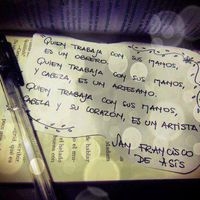 QUIEN TRABAJA CON SUS MANOS,
ES UN OBRERO.
QUIEN TRABAJA CON SUS MANOS,
Y CABEZA, ES UN ARTESANO.
QUIEN TRABAJA CON SUS MANOS,
CABEZA Y SU CORAZÓN, ES UN ARTISTA
SAN FRANCISCO
DE ASÍS